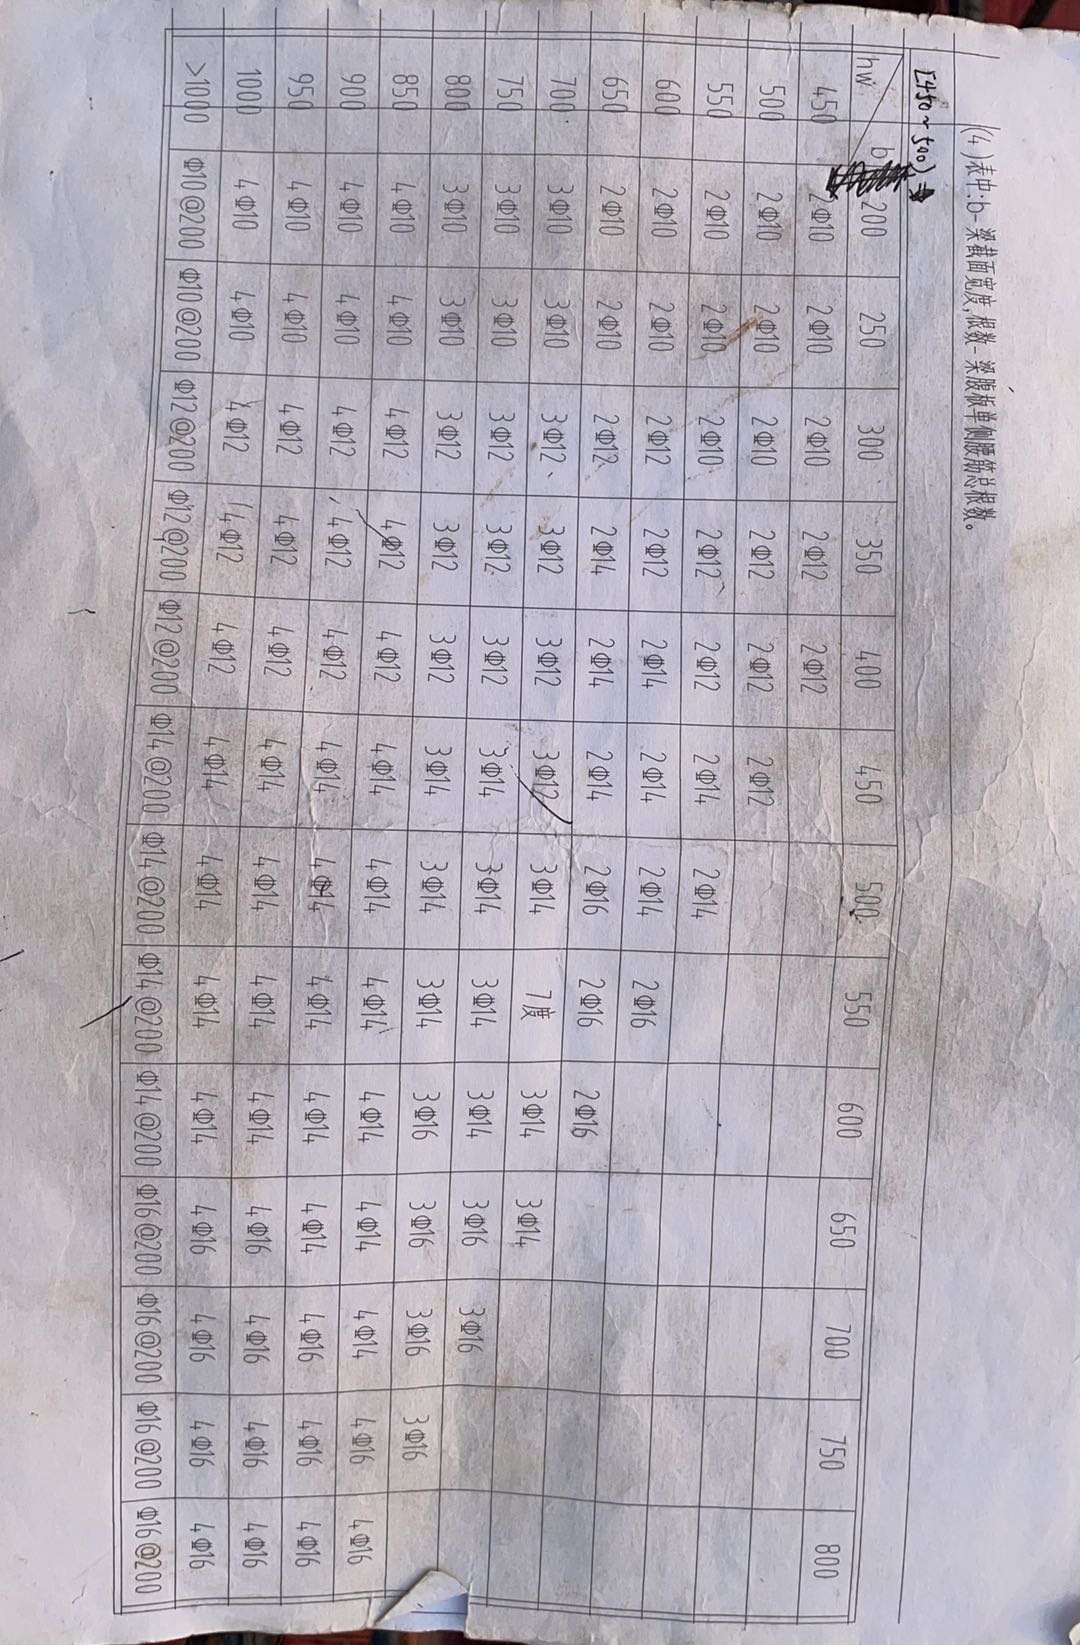 (4)表中:b-梁截面宽度,根数-梁腹板单侧腰筋总根数。
[450~500)
hw b 200 250 300 350 400 450 500 550 600 650 700 750 800
450 2Φ10 2Φ10 2Φ10 2Φ12 2Φ12
500 2Φ10 2Φ10 2Φ10 2Φ12 2Φ12 2Φ12
550 2Φ10 2Φ10 2Φ10 2Φ12 2Φ12 2Φ14 2Φ14
600 2Φ10 2Φ10 2Φ12 2Φ12 2Φ14 2Φ14 2Φ14 2Φ16
650 2Φ10 2Φ10 2Φ12 2Φ14 2Φ14 2Φ14 2Φ16 2Φ16 2Φ16
700 3Φ10 3Φ10 3Φ12 3Φ12 3Φ12 3Φ12 3Φ14 7度 3Φ14 3Φ14
750 3Φ10 3Φ10 3Φ12 3Φ12 3Φ12 3Φ14 3Φ14 3Φ14 3Φ14 3Φ16 3Φ16
800 3Φ10 3Φ10 3Φ12 3Φ12 3Φ12 3Φ14 3Φ14 3Φ14 3Φ16 3Φ16 3Φ16 3Φ16
850 4Φ10 4Φ10 4Φ12 4Φ12 4Φ12 4Φ14 4Φ14 4Φ14 4Φ14 4Φ14 4Φ14 4Φ16 4Φ16
900 4Φ10 4Φ10 4Φ12 4Φ12 4Φ12 4Φ14 4Φ14 4Φ14 4Φ14 4Φ14 4Φ16 4Φ16 4Φ16
950 4Φ10 4Φ10 4Φ12 4Φ12 4Φ12 4Φ14 4Φ14 4Φ14 4Φ14 4Φ16 4Φ16 4Φ16 4Φ16
1000 4Φ10 4Φ10 4Φ12 4Φ12 4Φ12 4Φ14 4Φ14 4Φ14 4Φ14 4Φ16 4Φ16 4Φ16 4Φ16
>1000 Φ10@200 Φ10@200 Φ12@200 Φ12@200 Φ12@200 Φ14@200 Φ14@200 Φ14@200 Φ14@200 Φ16@200 Φ16@200 Φ16@200 Φ16@200